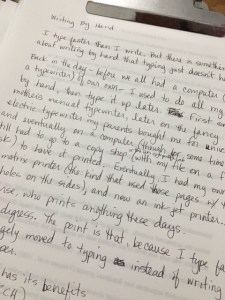 Writing By Hand
I type faster than I write. But there is somethin
about writing by hand that typing just doesn't ha
Back in the day – before we all had a computer (
a typewriter) of our own – I used to do all my
by hand, then type it up later. First on
mother's manual typewriter, later on the fancy
electric typewriter my parents bought me for univer
and eventually on a computer (though for some time
still had to go to a copy shop (with my file on a f
disk) to have it printed. Eventually I had my own
matrix printer (the kind that used those pages w/ t
holes on the sides) and now an ink jet printer.
rse, who prints anything these days.
digress. The point is that, because I type fa
gely moved to typing instead of writing
per.
has its benefits